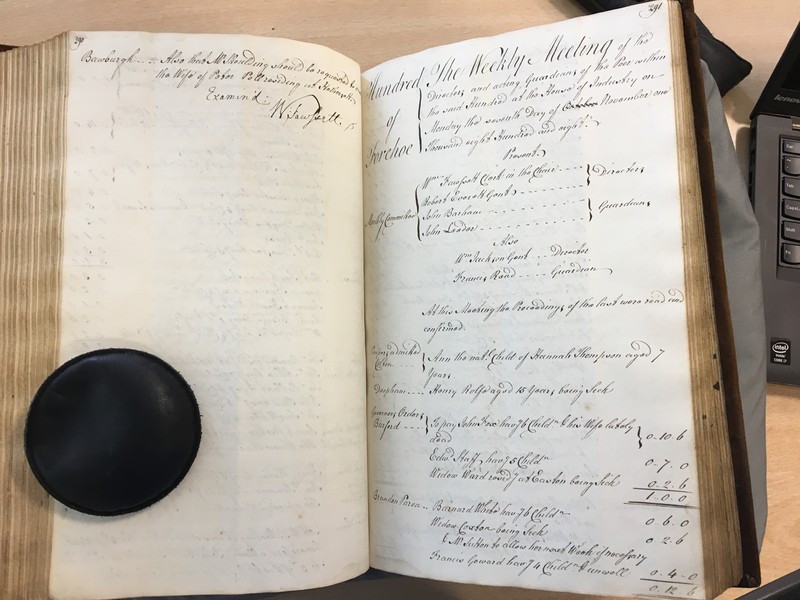 290
Bawburgh - - - Also that Mr Moulding should be requested to
the Wife of Peter B residing at
Examin'd
W. Fawssett
291
Hundred of Forehoe
The Weekly Meeting of the
Directors and acting Guardians of the Poor within
the said Hundred at the House of Industry on
Monday the seventh Day of October November one
Thousand eight Hundred and eight.
Present
Monthly Committee
Wm Fawssett Clerk in the Chair - - - -
Robert Everett Gent - - - - Directors
John Barham - - - -
John Leader - - - - Guardians
Also
Wm Jackson Gent - - - Director
Francis Read - - - Guardian
At this Meeting the Proceedings of the last were read and
confirmed.
admitted
Ann the natl Child of Hannah Thompson aged 7
Years
Deopham - - - Henry Rolfe aged 15 Years being Sick
Orders
Barford - - - To pay John Fox havg 6 Childn & his Wife lately
dead 0 - 10 . 6
Edwd Staff havg 5 Childn 0 - 7 . 0
Widow Ward residg at Easton being Sick 0 - 2 . 6
1 . 0 . 0
Brandon Parva - - Barnard White havg 6 Childn 0 6 . 0
Widow Coxton being Sick 0 2 . 6
& Mr Sutton to allow her next Week if necessary
Francis Goward havg 4 Childn & unwell 0 . 4 - 0
0 . 12 6
lenovo
Esc
Tab
Shift
Fn
intel
CORE i7